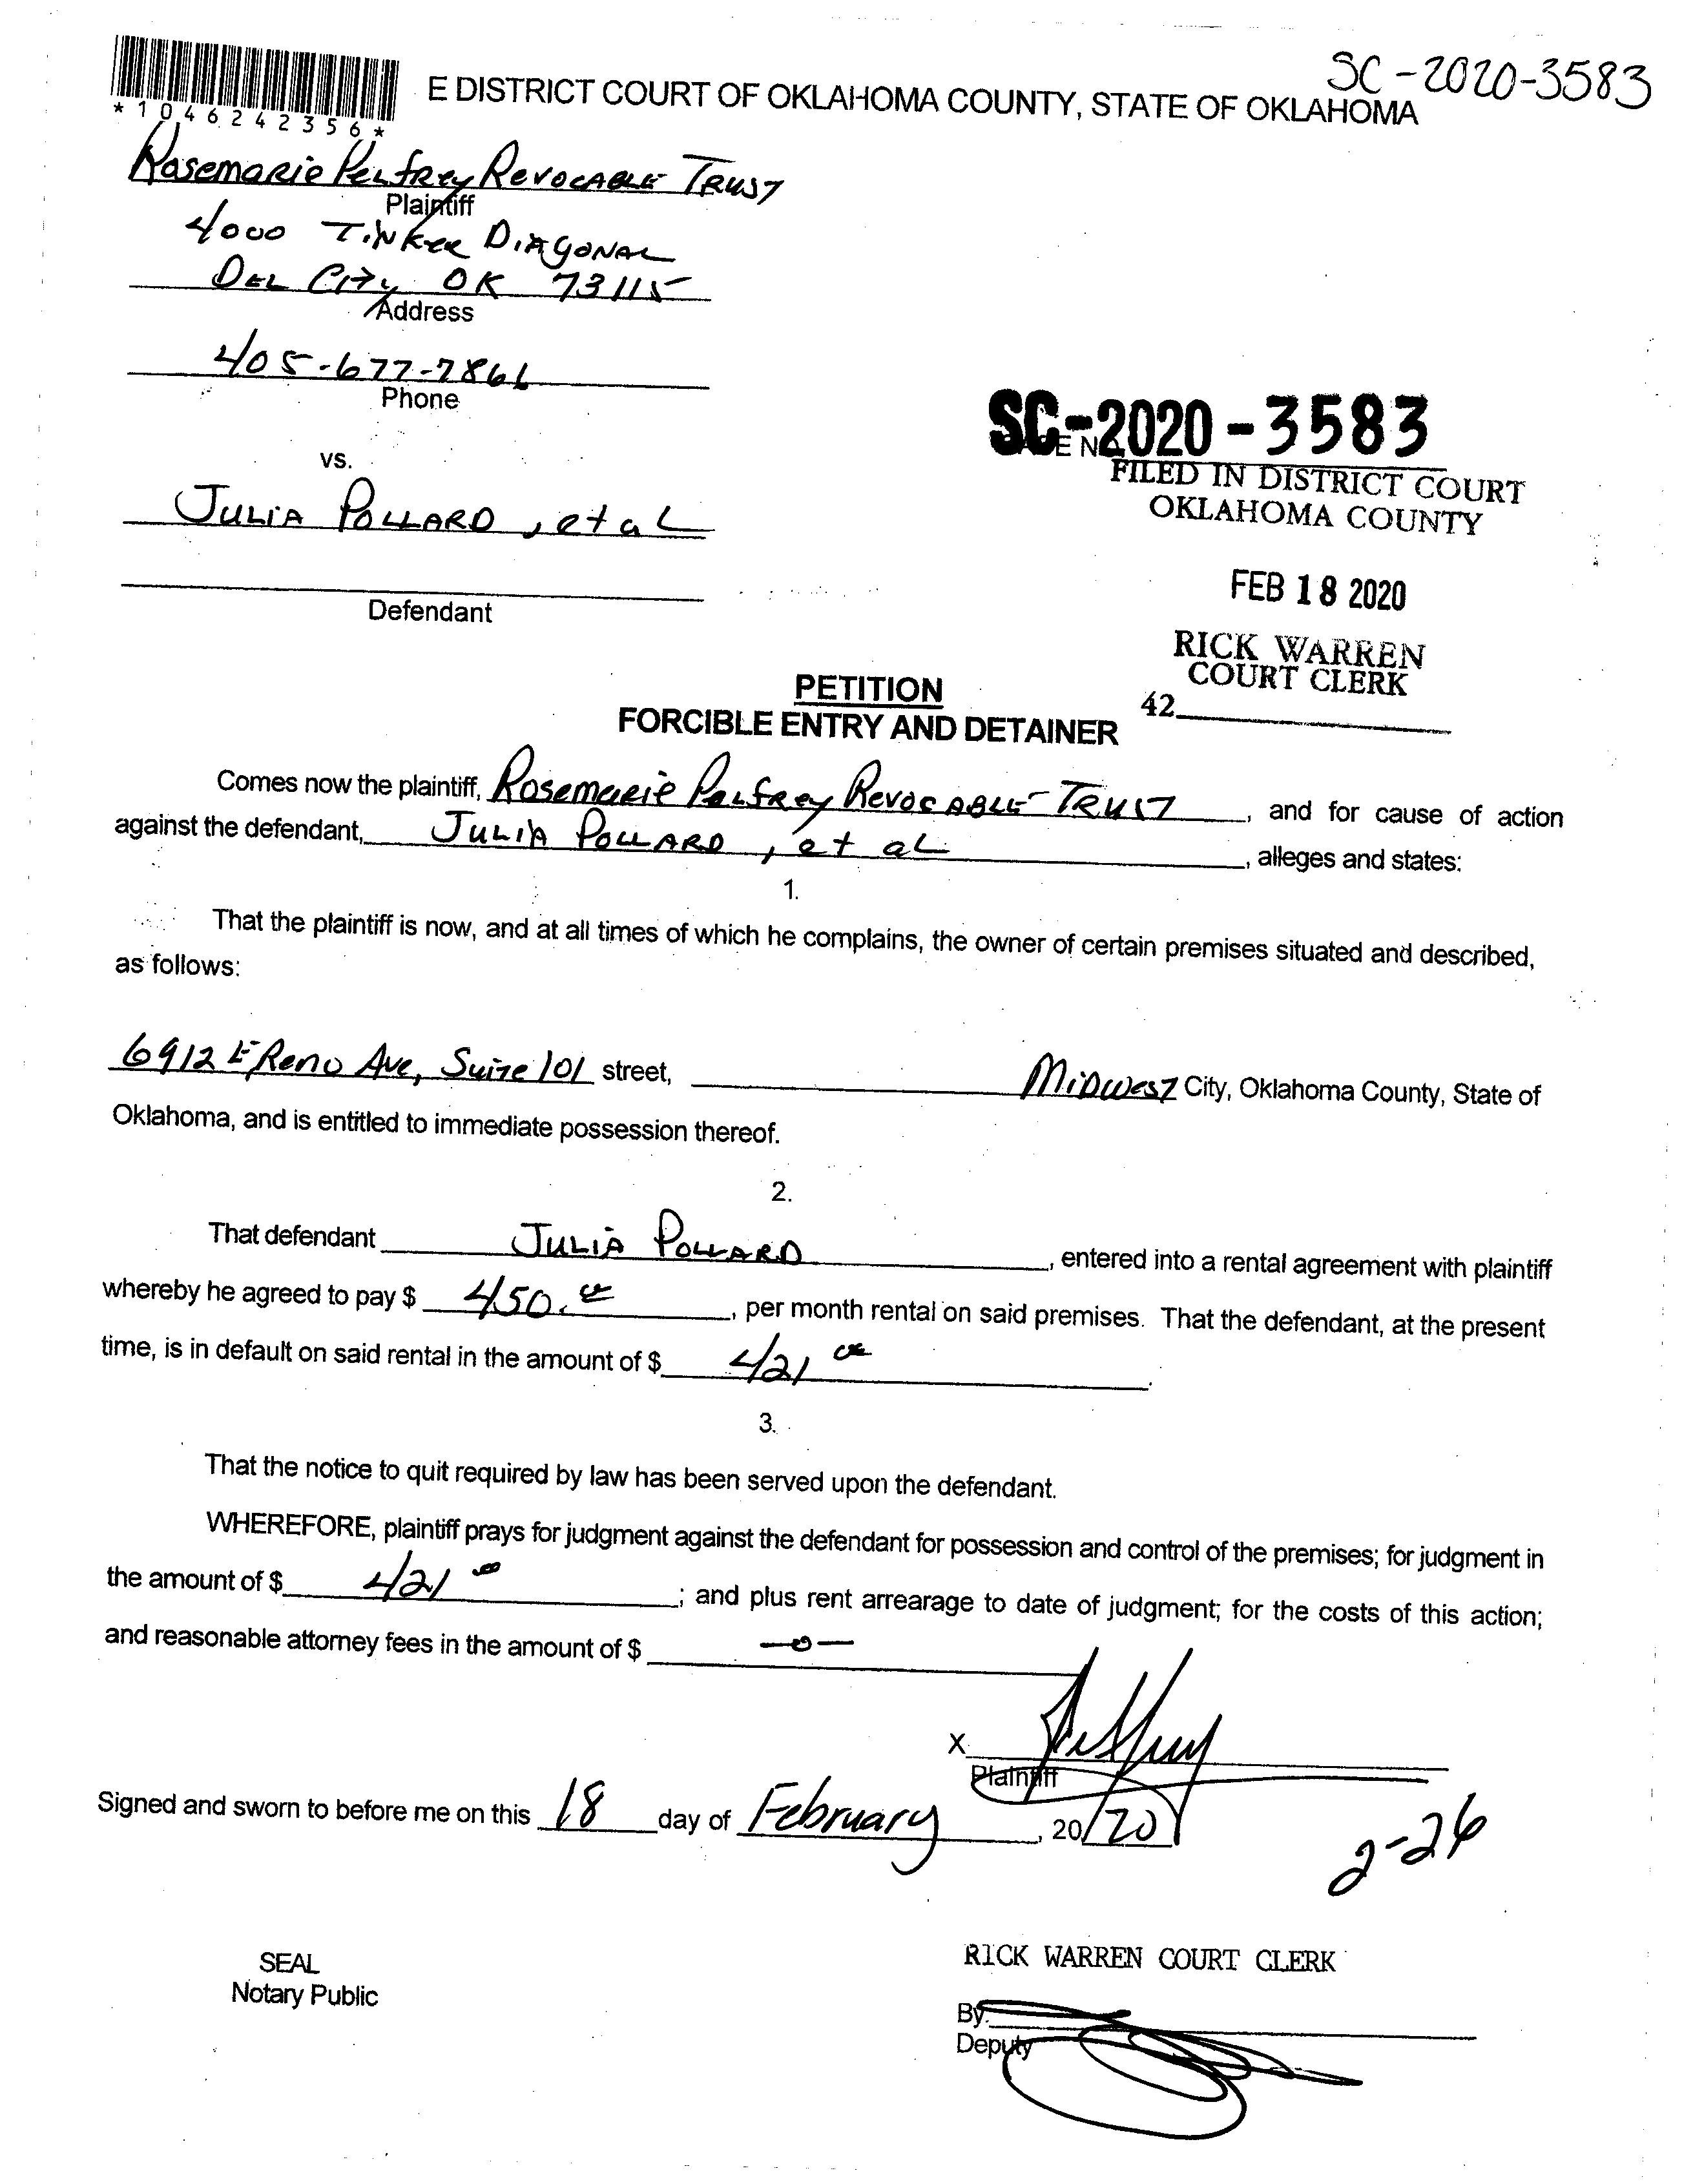 SC-2020-3583
E DISTRICT COURT OF OKLAHOMA COUNTY, STATE OF OKLAHOMA
*1046242356*
Rosemarie Pelfrey Revocable Trust
Plaintiff
4000 Tinker Diagonal
Del City OK 73115
Address
405-677-7866
Phone
SC-2020-3583
FILED IN DISTRICT COURT
vs.
OKLAHOMA COUNTY
Julia Pollard, et al
FEB 18 2020
Defendant
RICK WARREN
COURT CLERK
PETITION
42
FORCIBLE ENTRY AND DETAINER
Comes now the plaintiff, Rosemarie Pelfrey Revocable Trust, and for cause of action
against the defendant, Julia Pollard, et al, alleges and states:
1.
That the plaintiff is now, and at all times of which he complains, the owner of certain premises situated and described,
as follows:
6912 E Reno Ave, Suite 101 street, Midwest City, Oklahoma County, State of
Oklahoma, and is entitled to immediate possession thereof.
2.
That defendant Julia Pollard, entered into a rental agreement with plaintiff
whereby he agreed to pay $ 450.00, per month rental on said premises. That the defendant, at the present
time, is in default on said rental in the amount of $ 421 00.
3.
That the notice to quit required by law has been served upon the defendant.
WHEREFORE, plaintiff prays for judgment against the defendant for possession and control of the premises; for judgment in
the amount of $ 421 00; and plus rent arrearage to date of judgment; for the costs of this action;
and reasonable attorney fees in the amount of $ -0-
X
Plaintiff
Signed and sworn to before me on this 18 day of February, 20 20
2-26
RICK WARREN COURT CLERK
SEAL
Notary Public
By:
Deputy